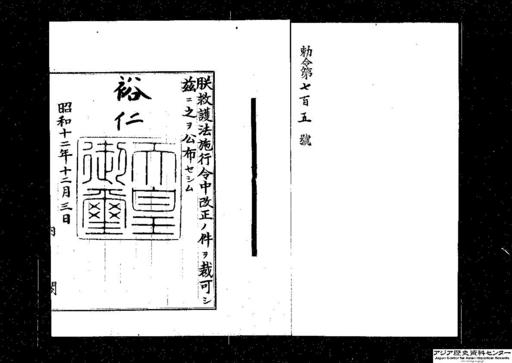 勅令第七百五號
朕救護法施行令中改正ノ件ヲ裁可シ
茲ニ之ヲ公布セシム
裕仁
天皇
御璽
昭和十二年十二月三日
内閣
アジア歴史資料センター
Japan Center for Asian Historical Records